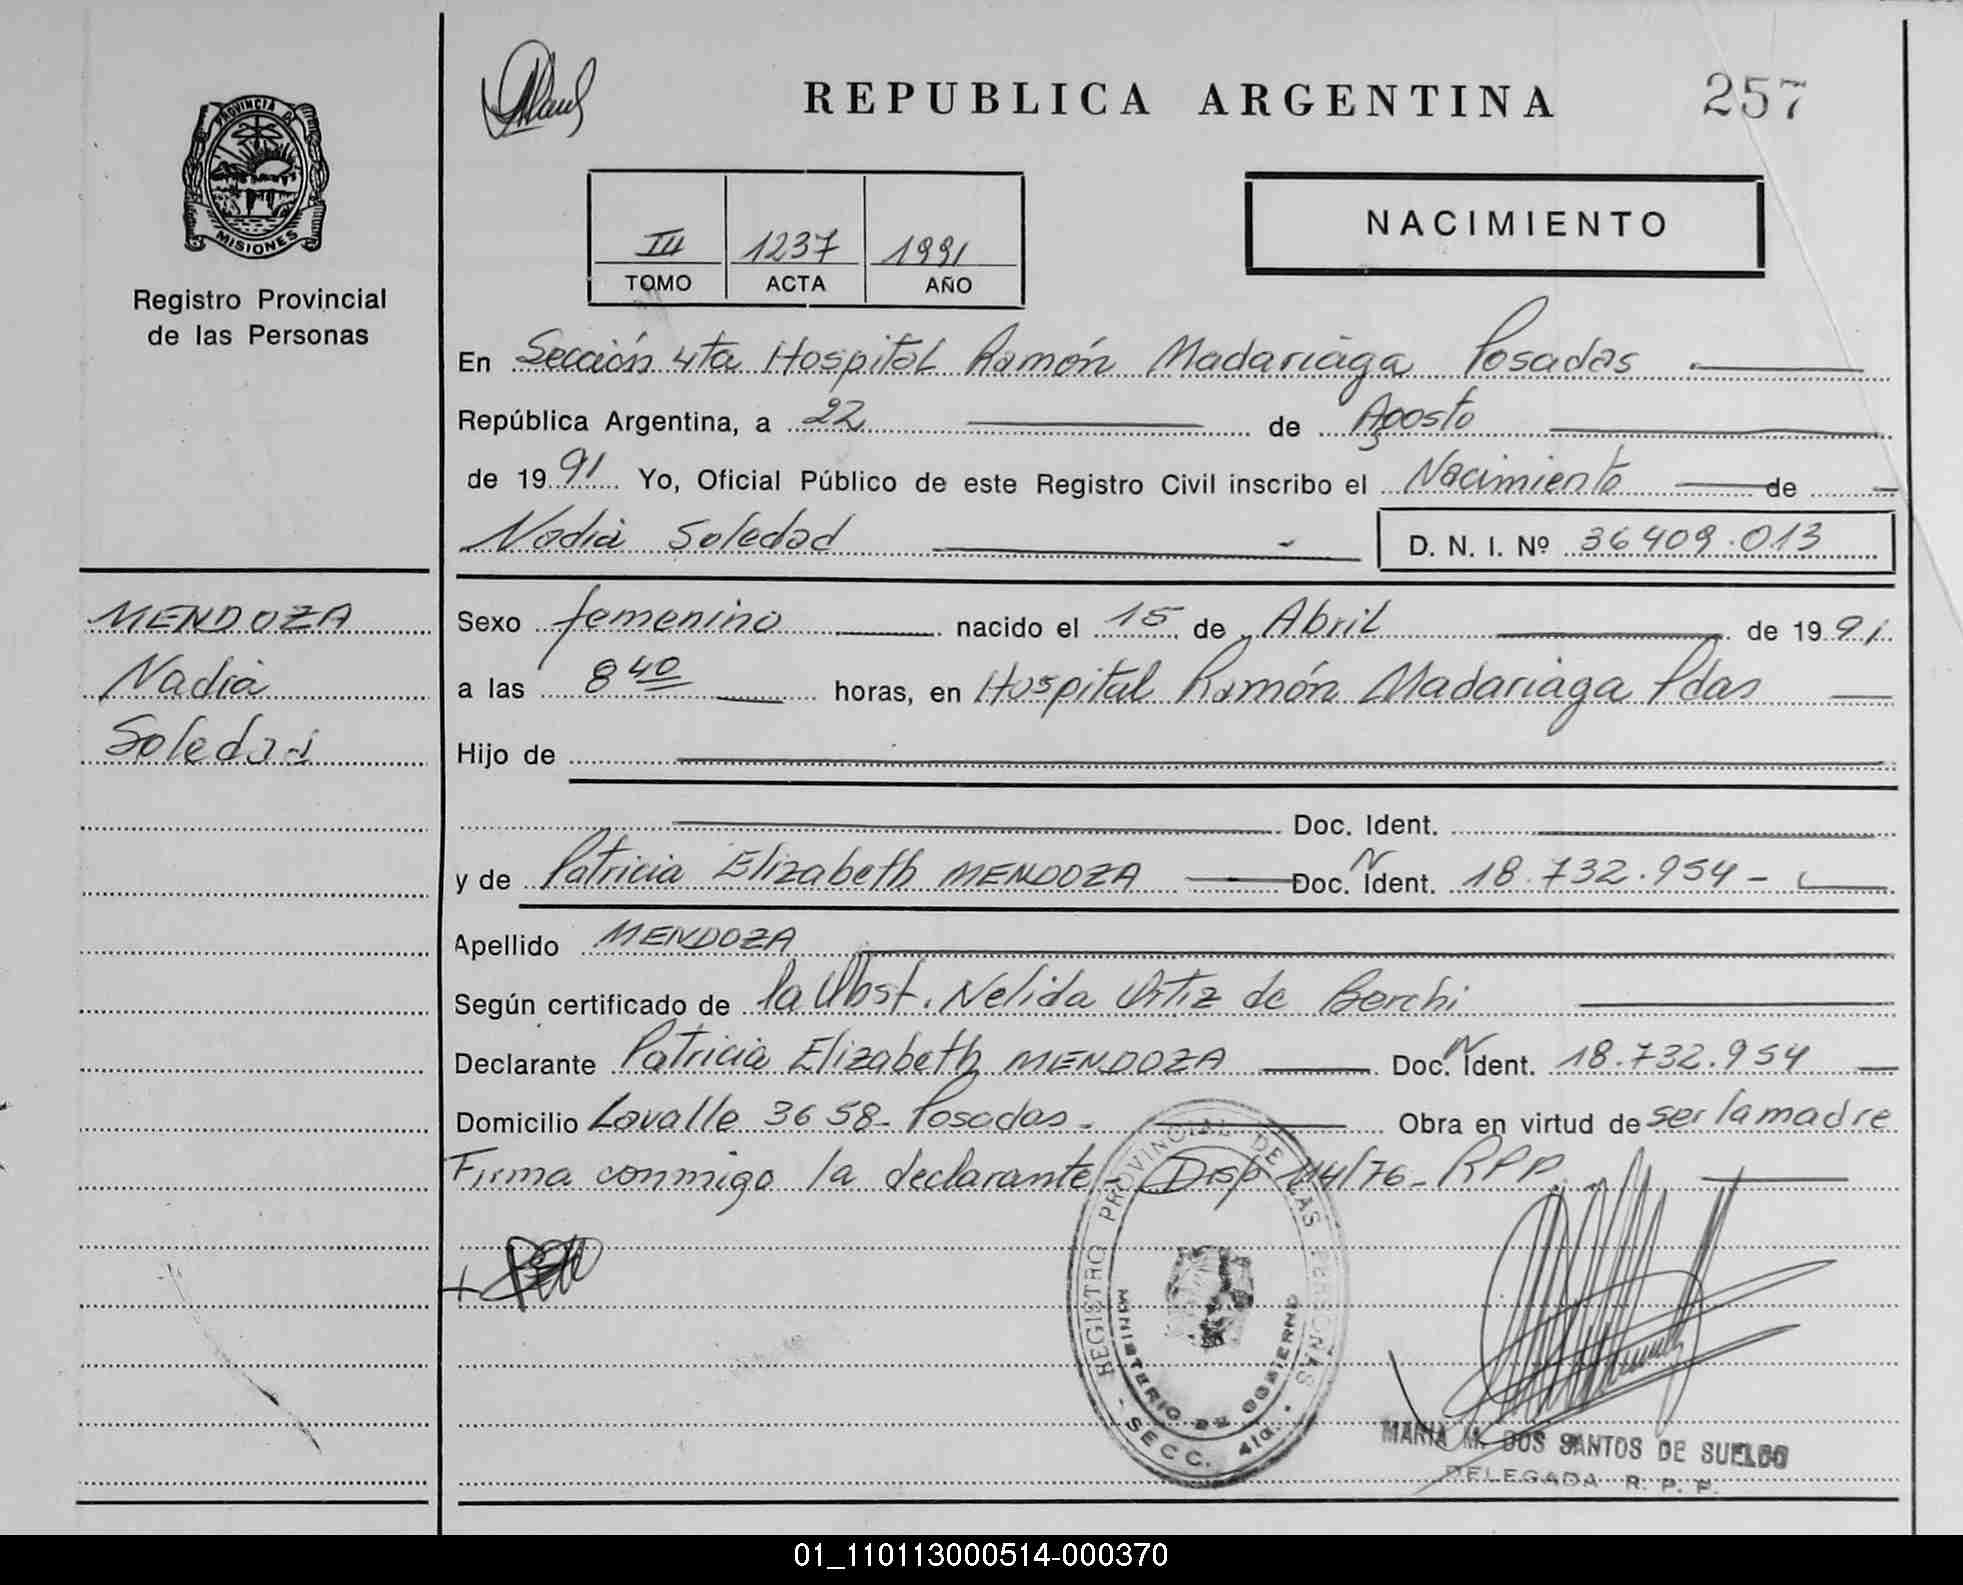 REPUBLICA ARGENTINA
257
PROVINCIA DE
MISIONES
Registro Provincial
de las Personas
III 1237 1991
TOMO ACTA AÑO
NACIMIENTO
En Sección 4ta Hospital Ramón Madariaga Posadas
República Argentina, a 22 de Agosto
de 1991 Yo, Oficial Público de este Registro Civil inscribo el Nacimiento de
Nadia Soledad D. N. I. Nº 36409.013
MENDOZA
Nadia
Soledad
Sexo femenino nacido el 15 de Abril de 1991
a las 8 40 horas, en Hospital Ramón Madariaga Pdas
Hijo de
Doc. Ident.
y de Patricia Elizabeth MENDOZA Doc. N Ident. 18.732.954 -
Apellido MENDOZA
Según certificado de la Obst. Nelida Ortiz de Berchi
Declarante Patricia Elizabeth MENDOZA Doc. N Ident. 18.732.954
Domicilio Lavalle 3658 - Posadas - Obra en virtud de ser la madre
Firma conmigo la declarante - Disp 114/76 - RPP.
REGISTRO PROVINCIAL DE LAS PERSONAS
MINISTERIO DE GOBIERNO
- SECC. 4ta. -
MARIA M. DOS SANTOS DE SUELDO
DELEGADA R. P. P.
01_110113000514-000370